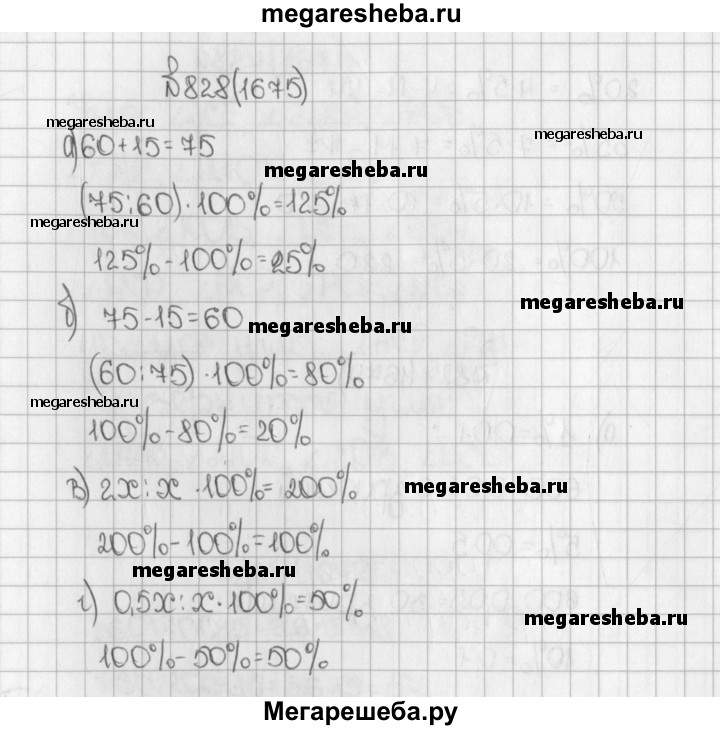 megaresheba.ru
№828(1675)
megaresheba.ru
megaresheba.ru
а) 60+15=75
megaresheba.ru
(75:60)·100%=125%
megaresheba.ru
125%-100%=25%
megaresheba.ru
б) 75-15=60
megaresheba.ru
(60:75)·100%=80%
megaresheba.ru
100%-80%=20%
в) 2x:x·100%=200%
megaresheba.ru
200%-100%=100%
megaresheba.ru
г) 0,5x:x·100%=50%
megaresheba.ru
100%-50%=50%
Мегарешеба.ру